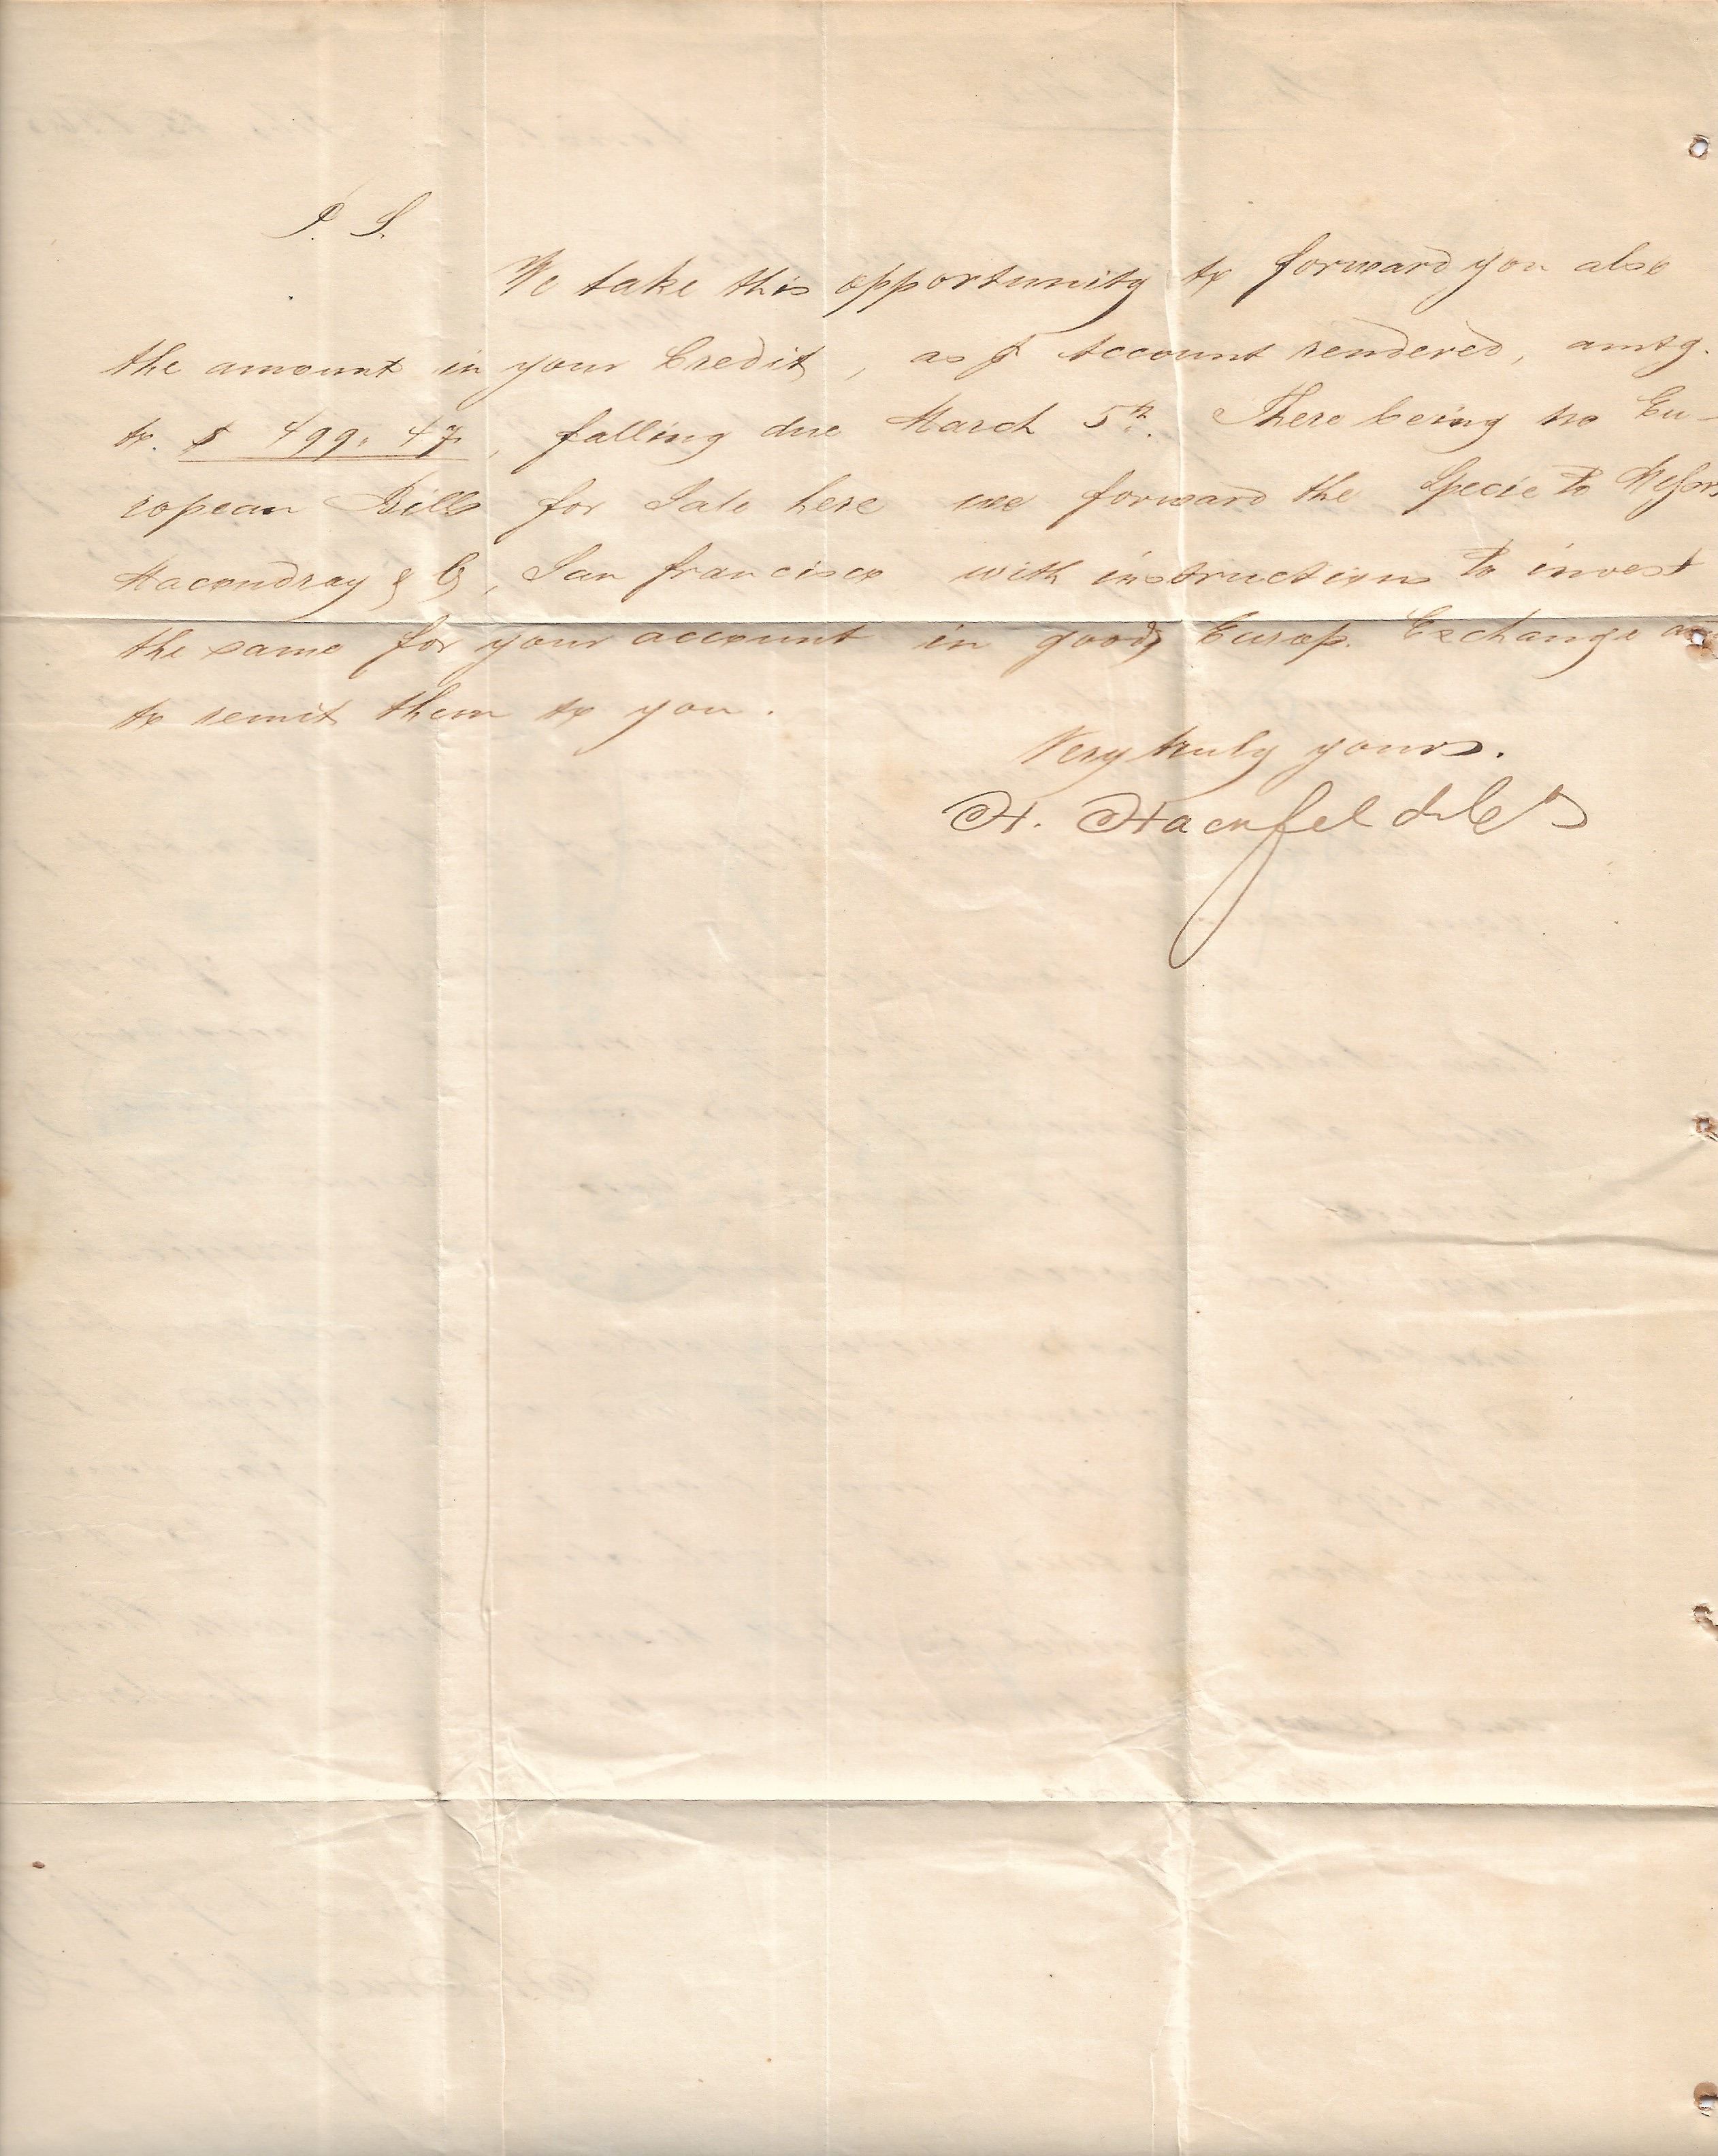 P. S.
We take this opportunity to forward you also
the amount in your Credit, as ⅌ Account rendered, amtg.
to. $ 499. 47, falling due March 5th. There being no Eu-
ropean Bills for Sale here we forward the Specie to Messrs
Macondray & Co, San francisco with instructions to invest
the same for your account in good Europ. Exchange
to remit them to you.
Very truly yours.
H. Hackfeld & Co